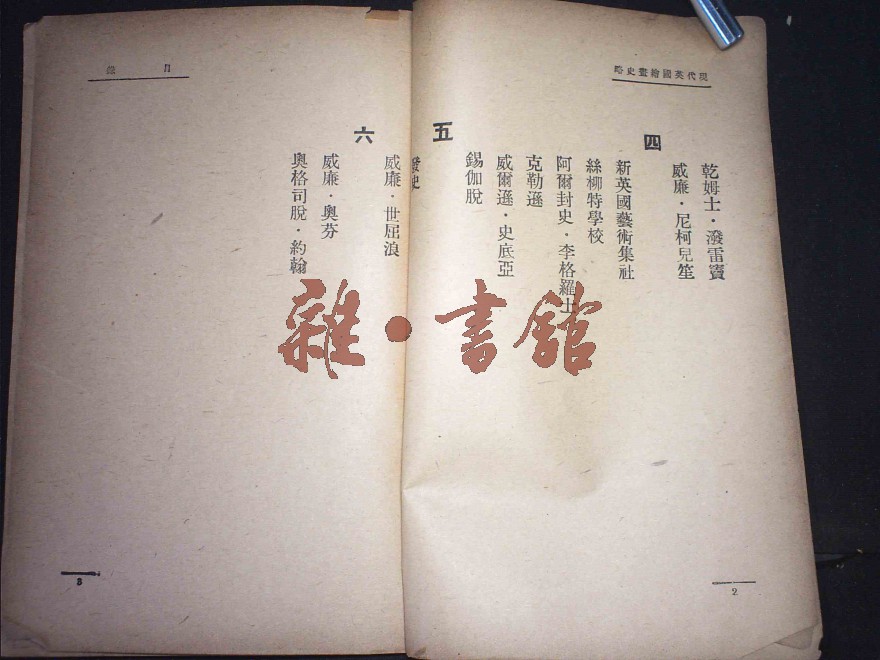 現代英國繪畫史略
乾姆士·潑雷竇
威廉·尼柯兒笙
四
新英國藝術集社
絲柳特學校
阿爾封史·李格羅士
克勒遜
威爾遜·史底亞
錫伽脫
五
2
目錄
發史
威廉·世屈浪
六
威廉·奧芬
奧格司脫·約翰
3
雜·書館